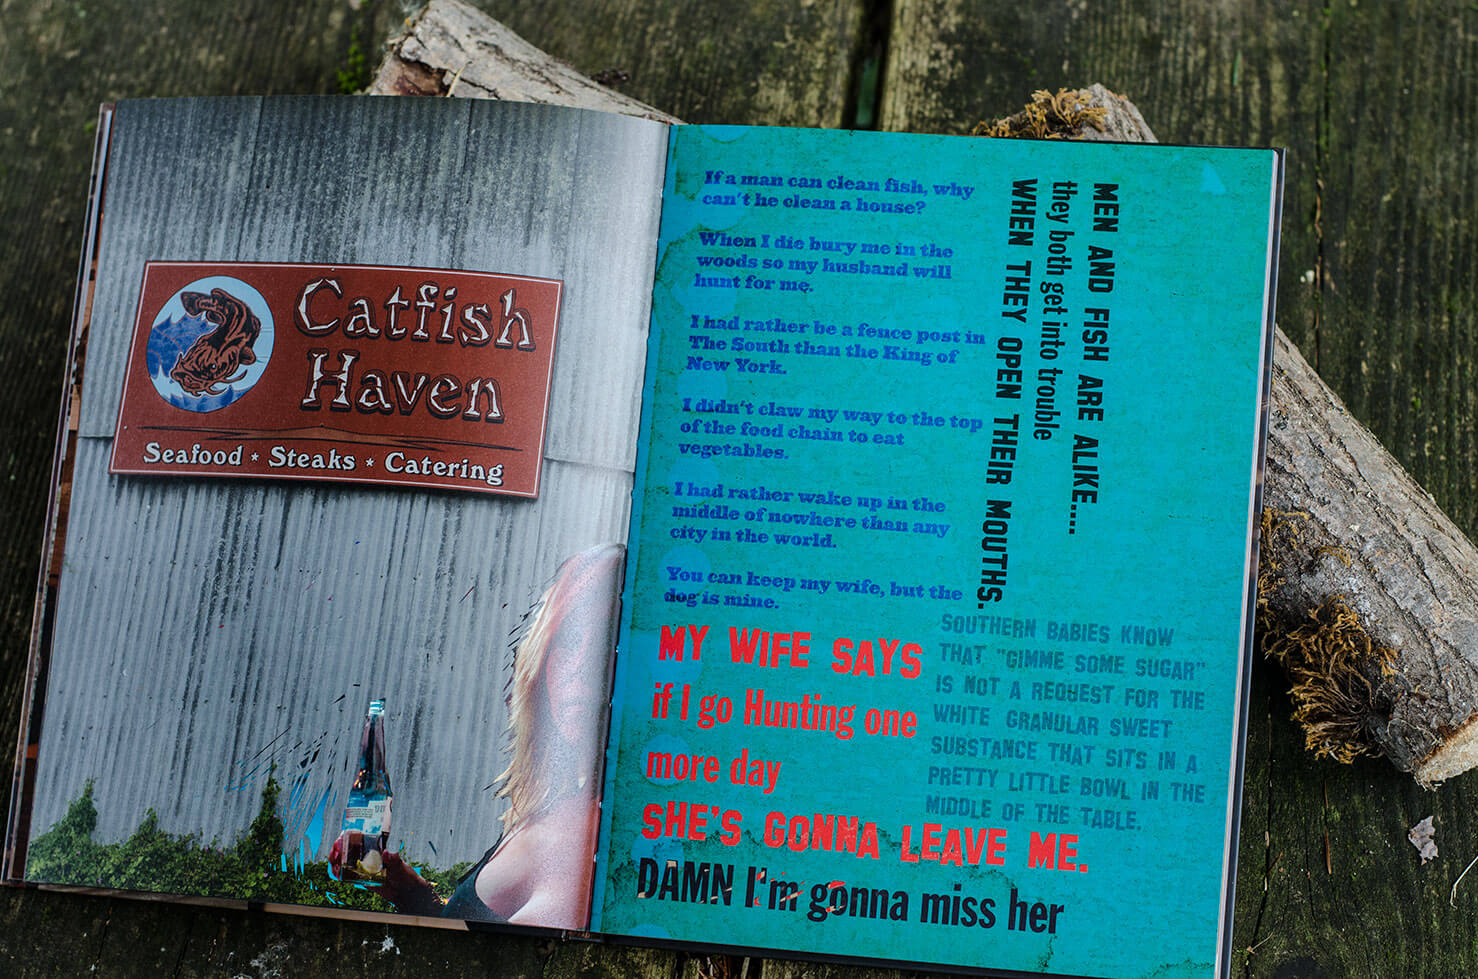 Catfish
Haven
Seafood * Steaks * Catering
If a man can clean fish, why
can't he clean a house?
When I die bury me in the
woods so my husband will
hunt for me.
I had rather be a fence post in
The South than the King of
New York.
I didn't claw my way to the top
of the food chain to eat
vegetables.
I had rather wake up in the
middle of nowhere than any
city in the world.
You can keep my wife, but the
dog is mine.
MEN AND FISH ARE ALIKE....
they both get into trouble
WHEN THEY OPEN THEIR MOUTHS.
SOUTHERN BABIES KNOW
THAT "GIMME SOME SUGAR"
IS NOT A REQUEST FOR THE
WHITE GRANULAR SWEET
SUBSTANCE THAT SITS IN A
PRETTY LITTLE BOWL IN THE
MIDDLE OF THE TABLE.
MY WIFE SAYS
if I go Hunting one
more day
SHE'S GONNA LEAVE ME.
DAMN I'm gonna miss her